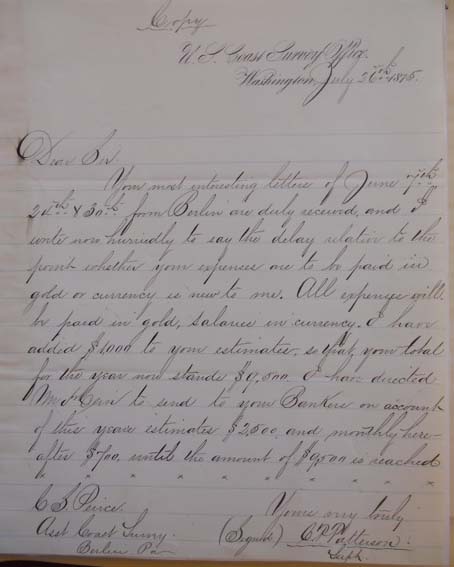 Copy
U. S. Coast Survey Office.
Washington July 26th 1875.
Dear Sir.
Your most interesting letters of June 7th
24th & 30th from Berlin are duly received, and I
write now hurriedly to say the delay relative to the
point whether your expenses are to be paid in
gold or currency is new to me. All expenses will
be paid in gold, salaries in currency. I have
added $ to your estimates, so that your total
for the year now stands $ I have directed
Mr to send to your Bankers on account
of this years estimates $2,500 and monthly here-
after $700. until the amount of $9,500 is reached
" " " " " " " " "
C. S. Peirce. Yours very truly
Asst Coast Survey. (Signed) C. P. Patterson.
Berlin Supt.